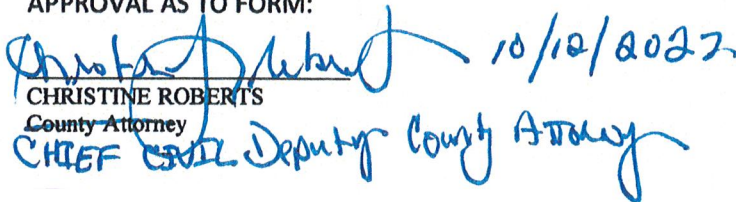 APPROVAL AS TO FORM:
10/12/2022
CHRISTINE ROBERTS
County Attorney
CHIEF CIVIL Deputy County Attorney